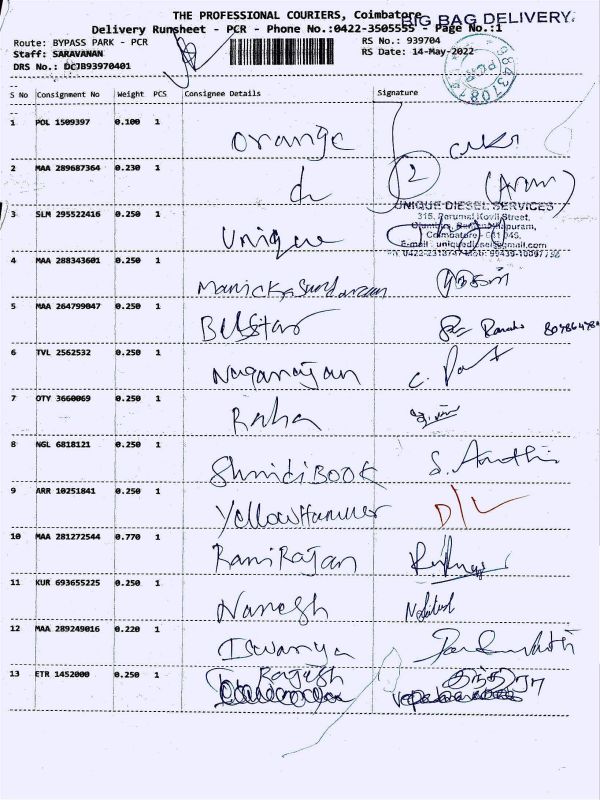 THE PROFESSIONAL COURIERS, Coimbatore
BIG BAG DELIVERY.
Delivery Runsheet - PCR - Phone No.:0422-3505555 - Page No.:1
Route: BYPASS PARK - PCR
RS No.: 939704
Staff: SARAVANAN
RS Date: 14-May-2022
DRS No.: DCJB93970401
S No Consignment No Weight PCS Consignee Details Signature
1 POL 1509397 0.100 1 Orange
2 MAA 289687364 0.230 1 2 (Arun)
3 SLM 295522416 0.250 1 Unique
UNIQUE DIESEL SERVICES
315, Perumal Kovil Street,
Coimbatore - 641 045.
E-mail : uniquediesel@gmail.com
4 MAA 288343601 0.250 1 Manickasundaram
5 MAA 264799047 0.250 1 Bellstar
6 TVL 2562532 0.250 1 Naganajan
7 OTY 3660069 0.250 1 Raha
8 NGL 6818121 0.250 1 Shruti BOOK
9 ARR 10251841 0.250 1 YellowHammer D/L
10 MAA 281272544 0.770 1 Rami Rajan
11 KUR 693655225 0.250 1 Nanesh
12 MAA 289249016 0.220 1 Iswarya
13 ETR 1452000 0.250 1 Rajesh